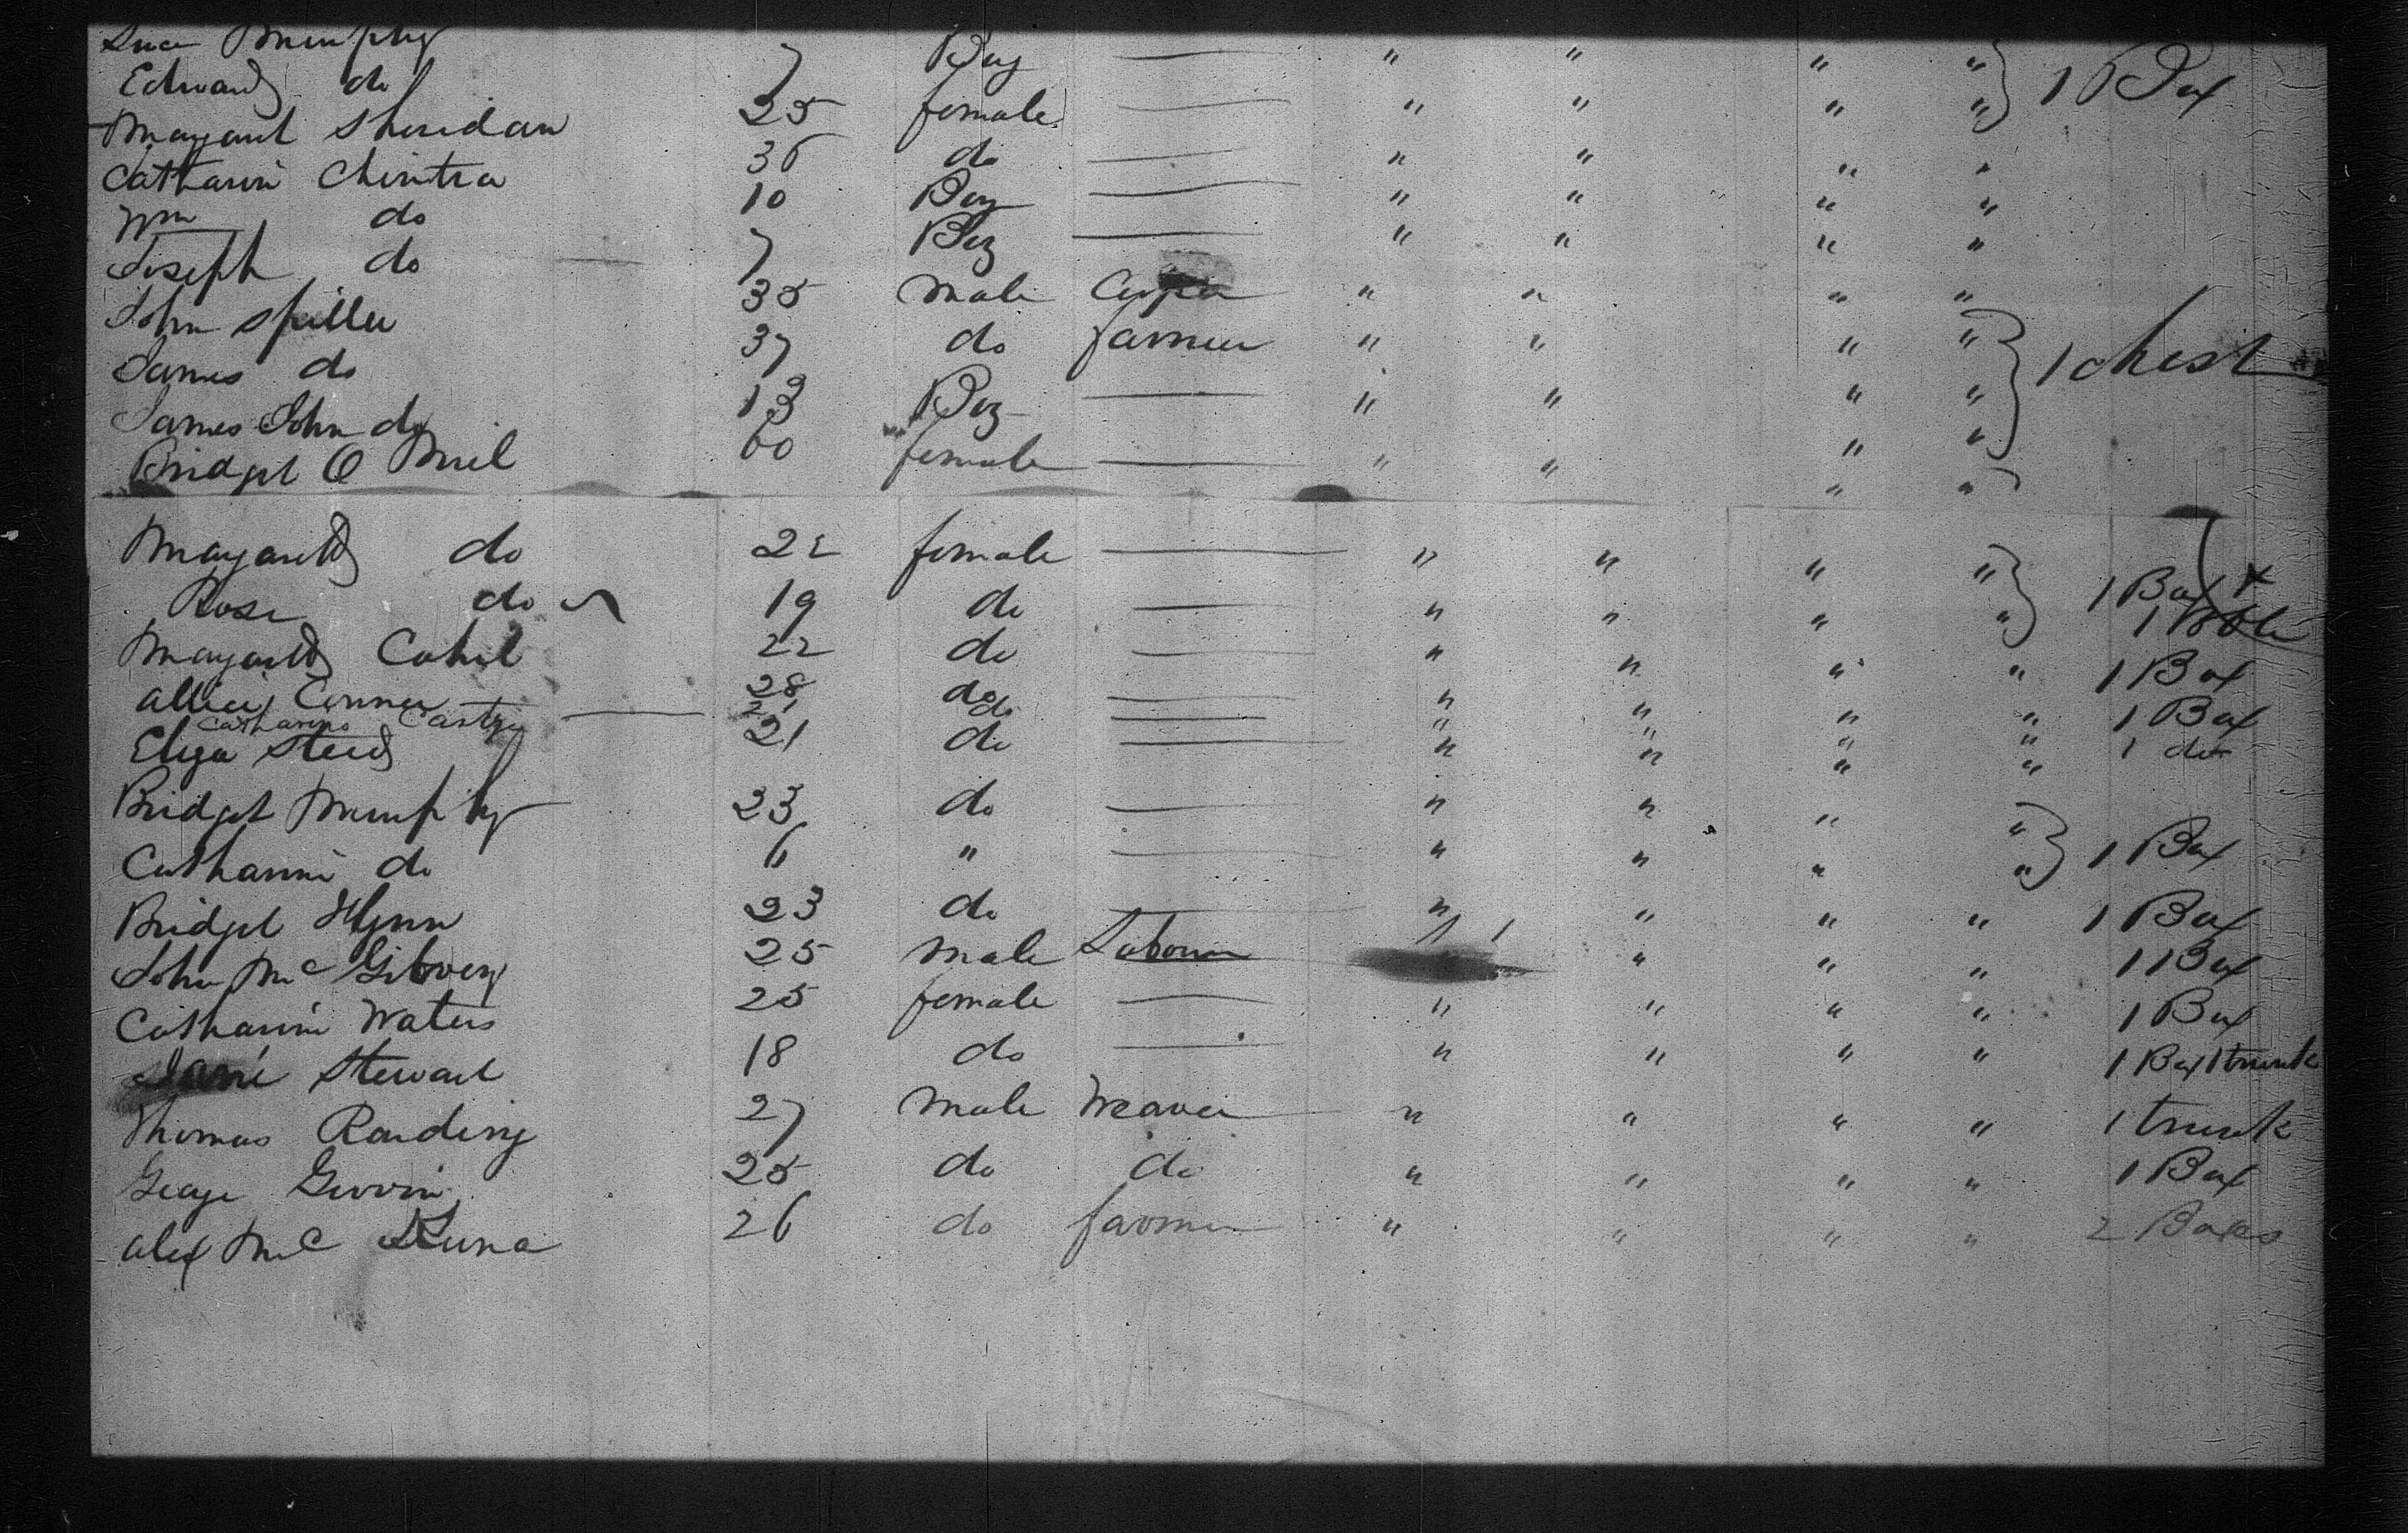 Murphy
Edward do 7 Boy — " " " " 1 Box
Margaret Sheridan 25 female — " " " "
Catharine 36 do — " " " "
Wm do 10 Boy — " " " "
Joseph do 7 Boy — " " " "
John Spiller 35 male " " " "
James do 37 do farmer " " " " 1 chest
James John do 13 Boy — " " " "
Bridget O Neil 60 female — " " " "
Margarett do 22 female — " " " " 1 Box
Rose do 19 do — " " " "
Margarett Cahil 22 do — " " " " 1 Box
Allice Conner 28 do — " " " " 1 Box
Catharine do — " " " " 1 do
Eliza 21 do — " " " "
Bridget Murphy 23 do — " " " "
Catharine do 6 " — " " " " 1 Box
Bridget Flynn 23 do — " " " " 1 Box
John Mc Givney 25 male Labourer " " " 1 Box
Catharine Waters 25 female — " " " " 1 Box
Jane Stewart 18 do — " " " " 1 Box 1 trunk
Thomas 27 male Weaver " " " " 1 trunk
George 25 do do " " " " 1 Box
Alex Mc 26 do farmer " " " " 2 Boxes